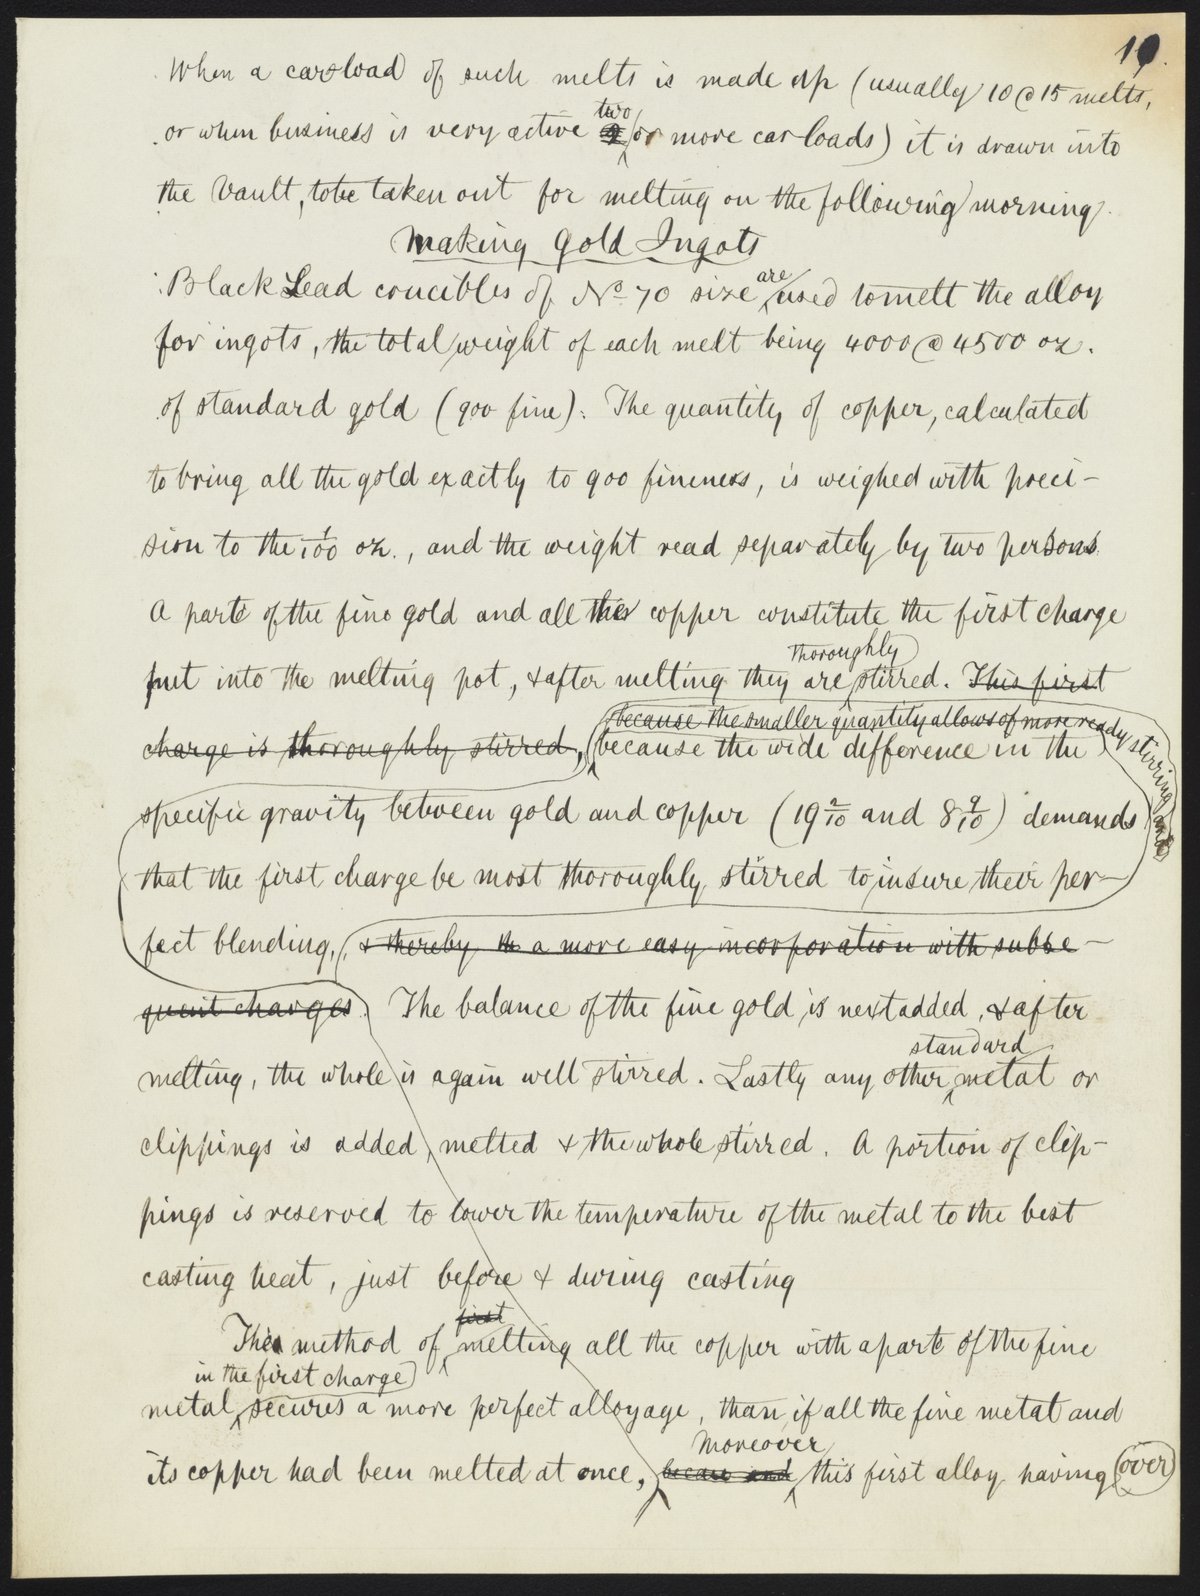 19.
When a car-load of such melts is made up (usually 10 @ 15 melts,
or when business is very active 2 two or more car-loads) it is drawn into
the Vault, to be taken out for melting on the following morning.
Making Gold Ingots
Black Lead crucibles of No. 70 size are used to melt the alloy
for ingots, the total weight of each melt being 4000 @ 4500 oz.
of standard gold (900 fine). The quantity of copper, calculated
to bring all the gold exactly to 900 fineness, is weighed with preci-
sion to the 1/100 oz., and the weight read separately by two persons.
A part of the fine gold and all the copper constitute the first charge
thoroughly
put into the melting pot, & after melting they are stirred. This first
because the smaller quantity allows of more ready stirring and
charge is thoroughly stirred, because the wide difference in the
specific gravity between gold and copper (19 2/10 and 8 9/10) demands
that the first charge be most thoroughly stirred to insure their per-
fect blending, & thereby th a more easy incorporation with subse-
quent charges. The balance of the fine gold is next added, & after
standard
melting, the whole is again well stirred. Lastly any other metal or
clippings is added, melted & the whole stirred. A portion of clip-
pings is reserved to lower the temperature of the metal to the best
casting heat, just before & during casting
first
This method of melting all the copper with a part of the fine
in the first charge
metal secures a more perfect alloyage, than if all the fine metal and
Moreover
its copper had been melted at once, and this first alloy having over